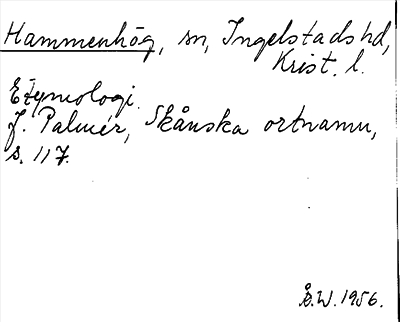 Hammenhög, sn, Ingelstads hd,
Krist. l.
Etymologi.
J. Palmér, Skånska ortnamn,
s. 117.
Å.W. 1956.